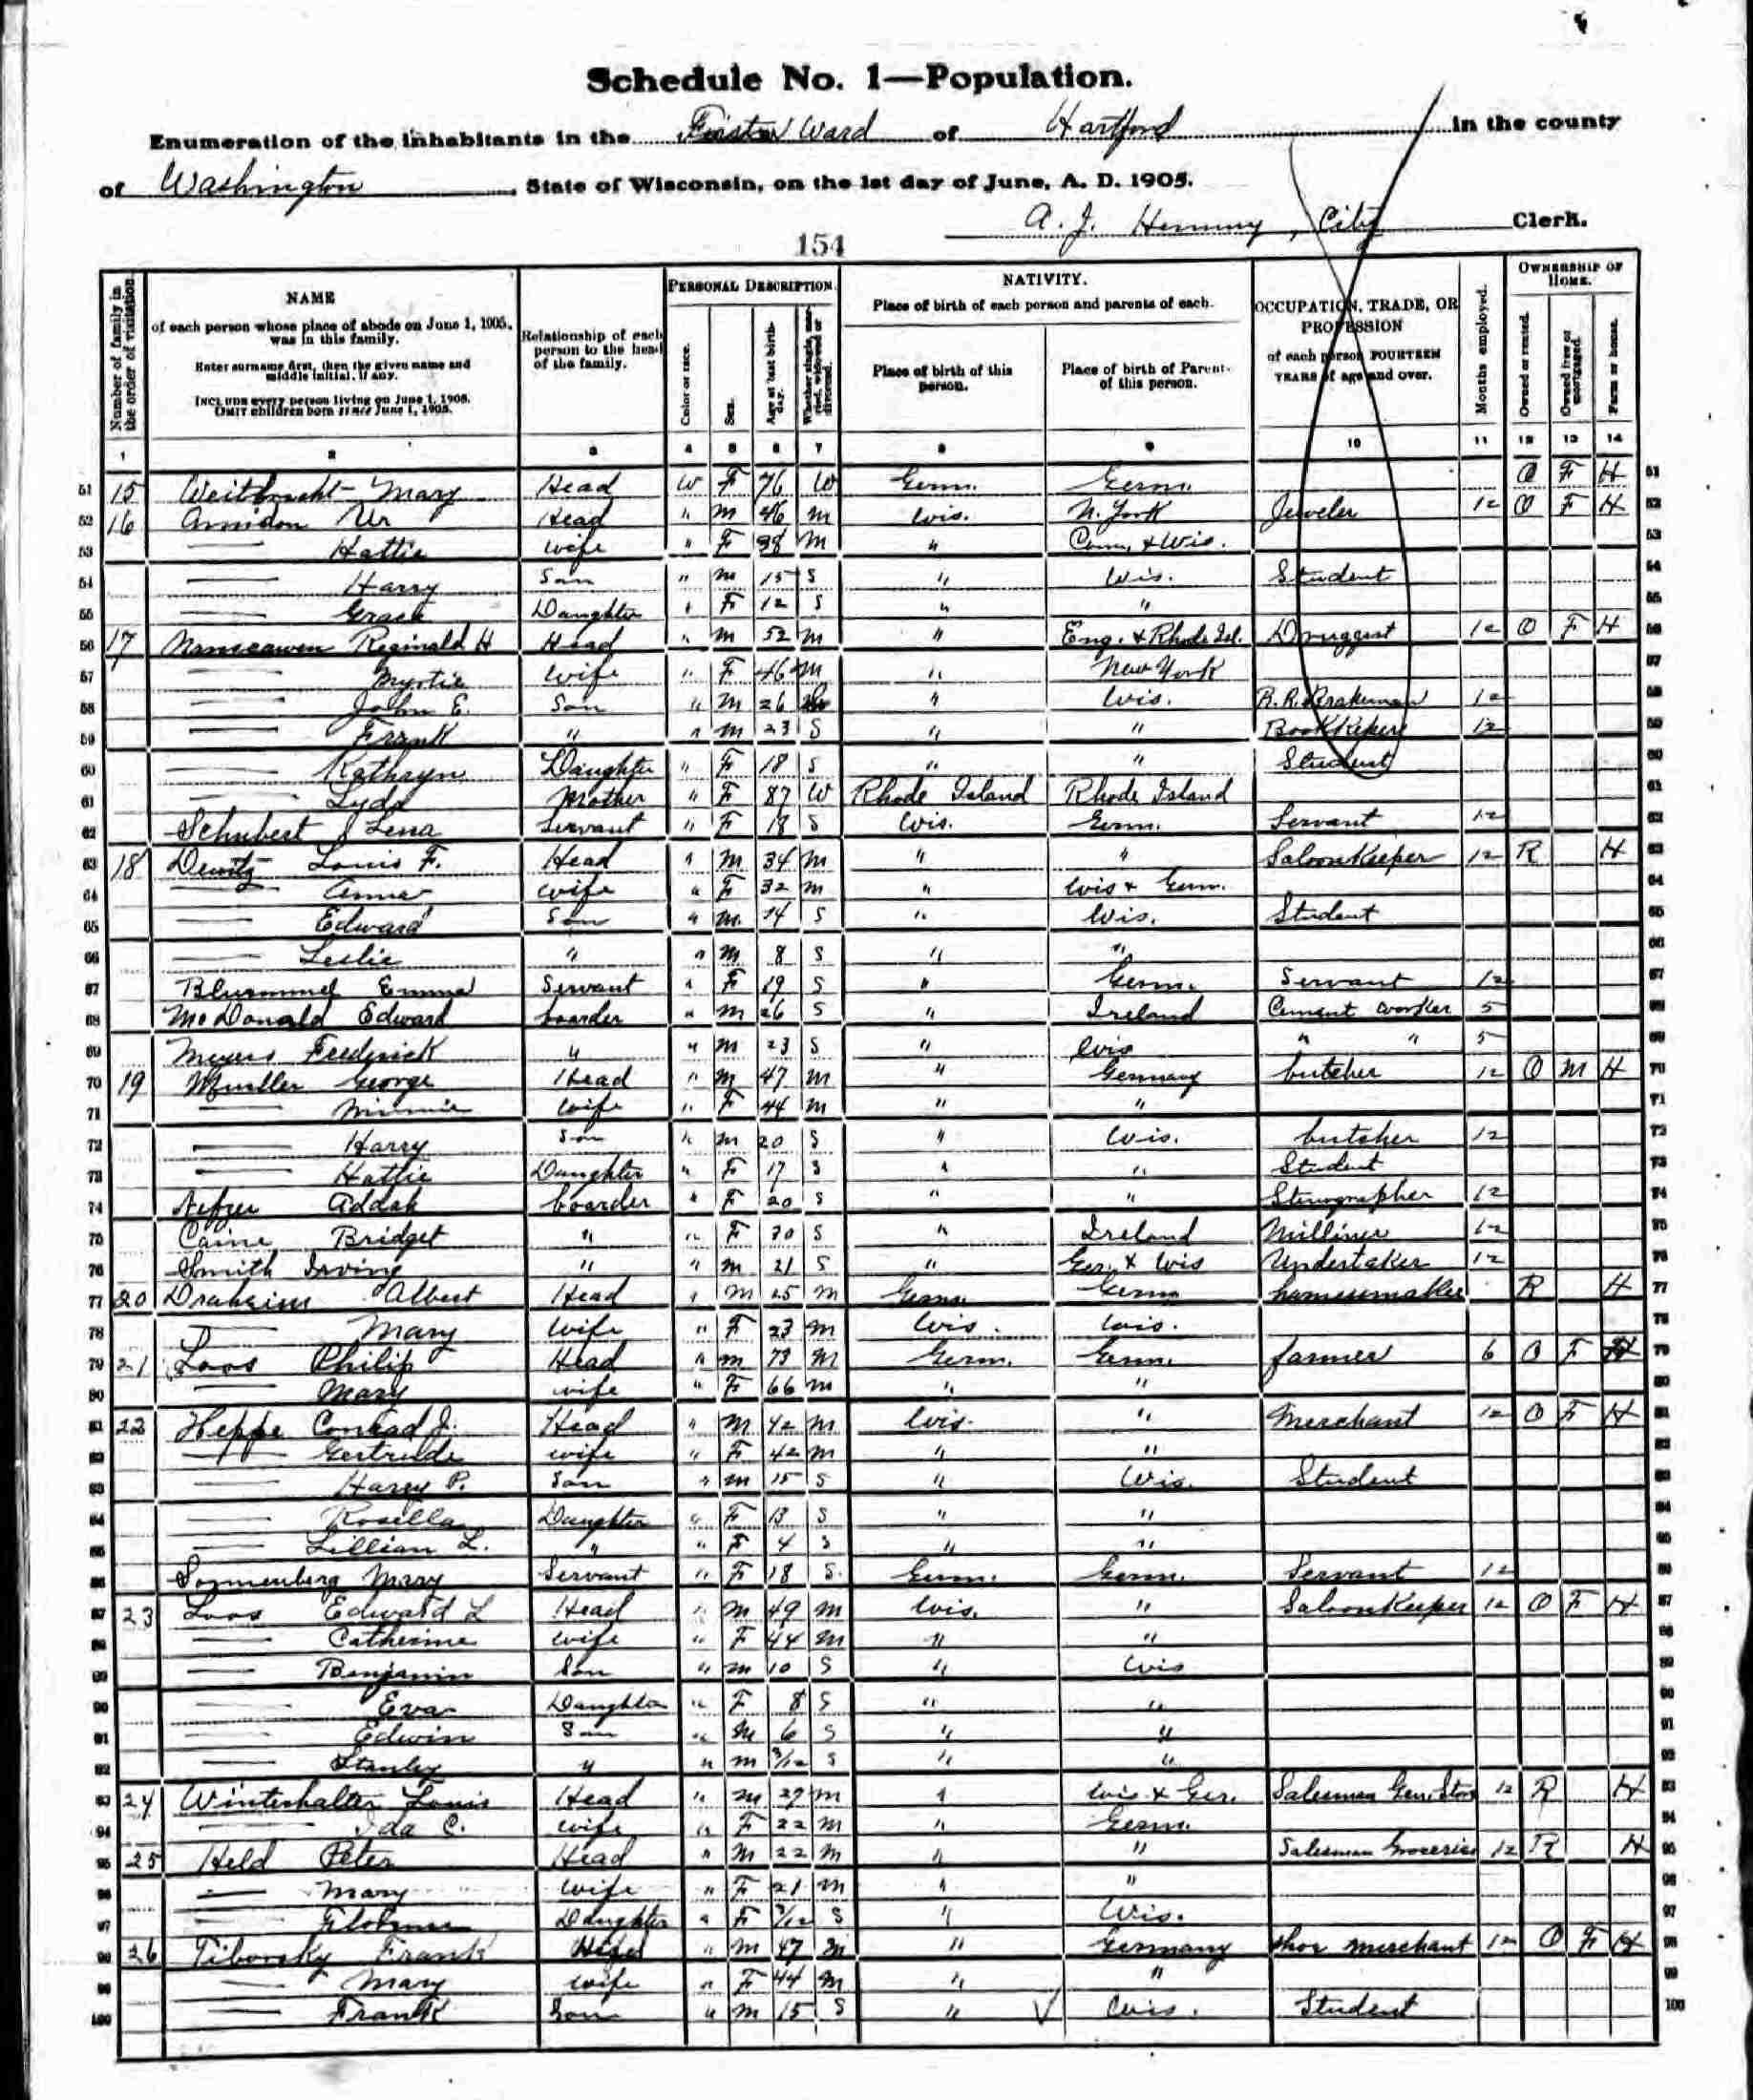 Schedule No. 1—Population.
Enumeration of the inhabitants in the First Ward of Hartford in the county
of Washington, State of Wisconsin, on the 1st day of June, A. D. 1905.
A. J. City Clerk.
154
Number of family in the order of visitation.
NAME
of each person whose place of abode on June 1, 1905, was in this family.
Enter surname first, then the given name and middle initial, if any.
INCLUDE every person living on June 1, 1905. OMIT children born since June 1, 1905.
Relationship of each person to the head of the family.
PERSONAL DESCRIPTION.
Color or race.
Sex.
Age at last birthday.
Whether single, married, widowed or divorced.
NATIVITY.
Place of birth of each person and parents of each.
Place of birth of this person.
Place of birth of Parents of this person.
OCCUPATION, TRADE, OR PROFESSION
of each person FOURTEEN YEARS of age and over.
Months employed.
OWNERSHIP OF HOME.
Owned or rented.
Owned free or mortgaged.
Farm or house.
1 2 3 4 5 6 7 8 9 10 11 12 13 14
51 15 Weitbrecht Mary Head W F 76 W Germ. Germ. O F H 51
52 16 Amidon Head " m 46 m Wis. N. York Jeweler 12 O F H 52
53 — Hattie wife " F 38 m " Conn. & Wis. 53
54 — Harry Son " m 15 S " Wis. Student 54
55 — Grace Daughter " F 12 S " " 55
56 17 Reginald H Head " m 52 m " Eng. & Rhode Isl. Druggist 12 O F H 56
57 — Myrtie wife " F 46 m " New York 57
58 — John E. Son " m 26 " Wis. R. R. Brakeman 12 58
59 — Frank " " m 23 S " " Bookkeeper 12 59
60 — Kathryn Daughter " F 18 S " " Student 60
61 — Lyda Mother " F 87 W Rhode Island Rhode Island 61
62 Schubert Lena Servant " F 18 S Wis. Germ. Servant 12 62
63 18 Dewitz Louis F. Head " m 34 m " " Saloonkeeper 12 R H 63
64 — Anna wife " F 32 m " Wis & Germ. 64
65 — Edward Son " m 14 S " Wis. Student 65
66 — Leslie " " m 8 S " " 66
67 Emma Servant " F 19 S " Germ. Servant 12 67
68 McDonald Edward boarder " m 26 S " Ireland Cement worker 5 68
69 Meyers Frederick " " m 23 S " Wis " " 5 69
70 19 Mueller George Head " m 47 m " Germany butcher 12 O m H 70
71 — Minnie wife " F 44 m " " 71
72 — Harry Son " m 20 S " Wis. butcher 12 72
73 — Hattie Daughter " F 17 S " " Student 73
74 Addah boarder " F 20 S " " Stenographer 12 74
75 Caine Bridget " " F 30 S " Ireland Milliner 12 75
76 Smith Irving " " m 21 S " Ger. & Wis Undertaker 12 76
77 20 Draheim Albert Head " m 25 m Germ. Germ harnessmaker R H 77
78 — Mary wife " F 23 m Wis. Wis. 78
79 21 Loos Philip Head " m 73 m Germ. Germ. farmer 6 O F H 79
80 — Mary wife " F 66 m " " 80
81 22 Heppe Conrad J. Head " m 42 m Wis. " Merchant 12 O F H 81
82 — Gertrude wife " F 42 m " " 82
83 — Harry P. Son " m 15 S " Wis. Student 83
84 — Rosella Daughter " F 13 S " " 84
85 — Lillian L. " " F 4 S " " 85
86 Sonnenberg Mary Servant " F 18 S. Germ. Germ. Servant 12 86
87 23 Loos Edward L Head " m 49 m Wis. " Saloonkeeper 12 O F H 87
88 — Catherine wife " F 44 m " " 88
89 — Benjamin Son " m 10 S " Wis 89
90 — Eva Daughter " F 8 S " " 90
91 — Edwin Son " m 6 S " " 91
92 — Stanley " " m 3/12 S " " 92
93 24 Winterhalter Louis Head " m 29 m " Wis & Ger. Salesman Gen. Store 12 R H 93
94 — Ida C. wife " F 22 m " Germ. 94
95 25 Held Peter Head " m 22 m " " Salesman Groceries 12 R H 95
96 — Mary wife " F 21 m " " 96
97 — Daughter " F /12 S " Wis. 97
98 26 Tiborsky Frank Head " m 47 m " Germany shoe merchant 12 O F H 98
99 — Mary wife " F 44 m " " 99
100 — Frank Son " m 15 S " Wis. Student 100